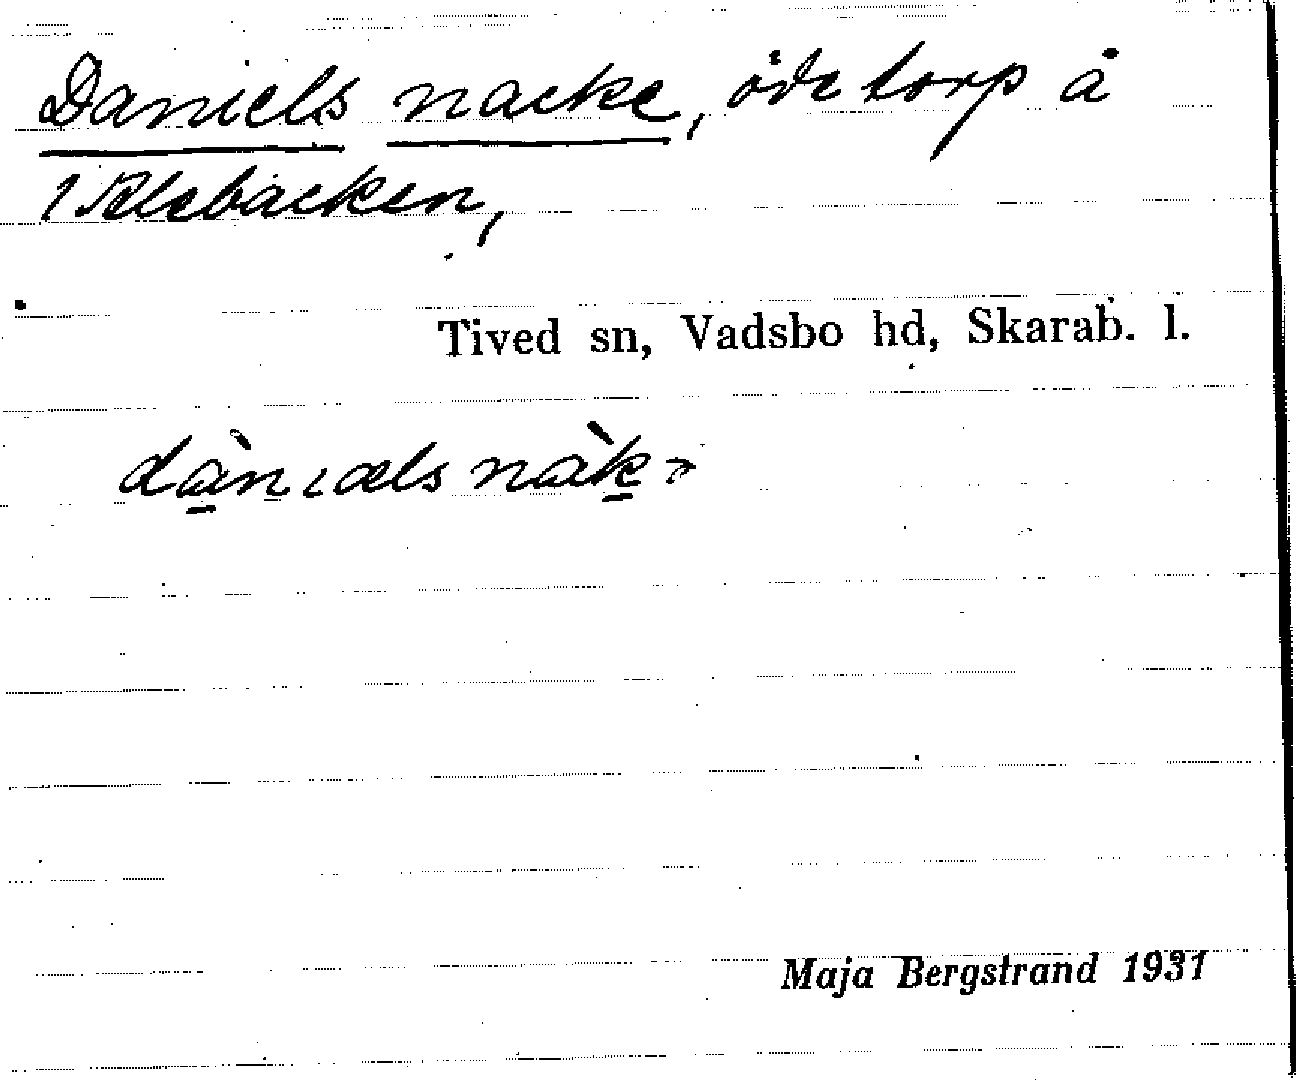 Daniels nacke, öde torp å
1 Klebacken,
Tived sn, Vadsbo hd, Skarab. l.
Maja Bergstrand 1931